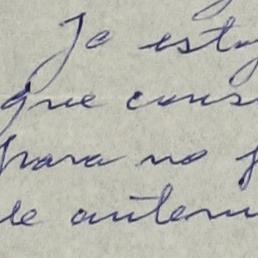 Ja esto
que cons
para no
de antem